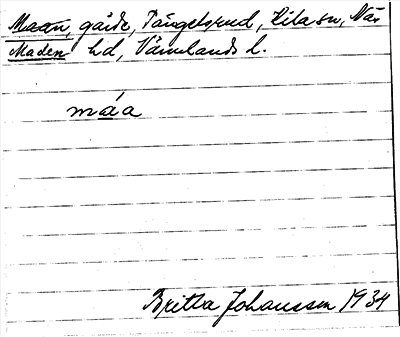 Maan, gärde, Tångelsrud, Kila sn, Näs
Maden hd, Värmlands l.
máa
Britta Johansson 1934